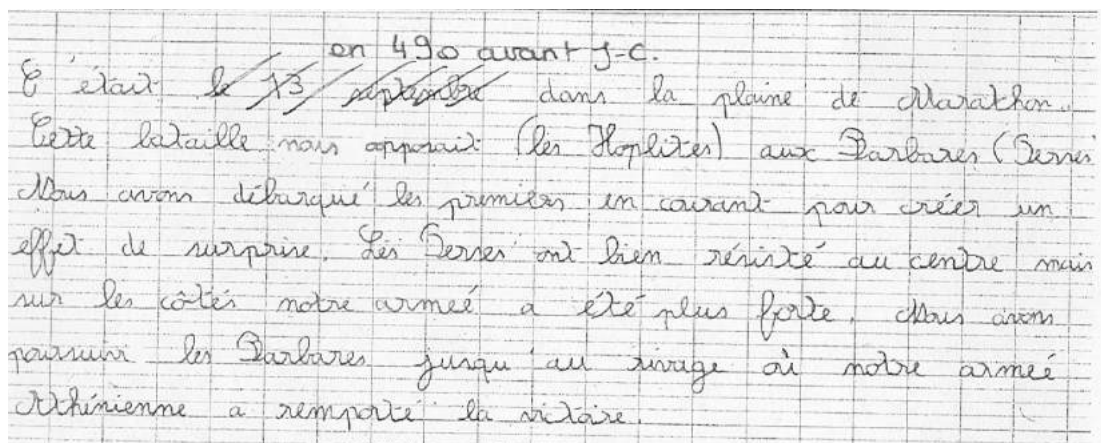 en 490 avant J-C.
C'était le 13 septembre dans la plaine de Marathon.
Cette bataille nous opposait (les Hoplites) aux Barbares (Perses
Nous avons débarqué les premiers en courant pour créer un
effet de surprise. Les Perses ont bien résisté au centre mais
sur les côtés notre armeé a été plus forte. Nous avons
poursuivi les Barbares jusqu'au rivage où notre armeé
Athénienne a remporté la victoire.